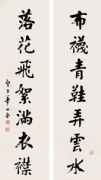 布襪青鞋弄雲水
落花飛絮滿衣襟